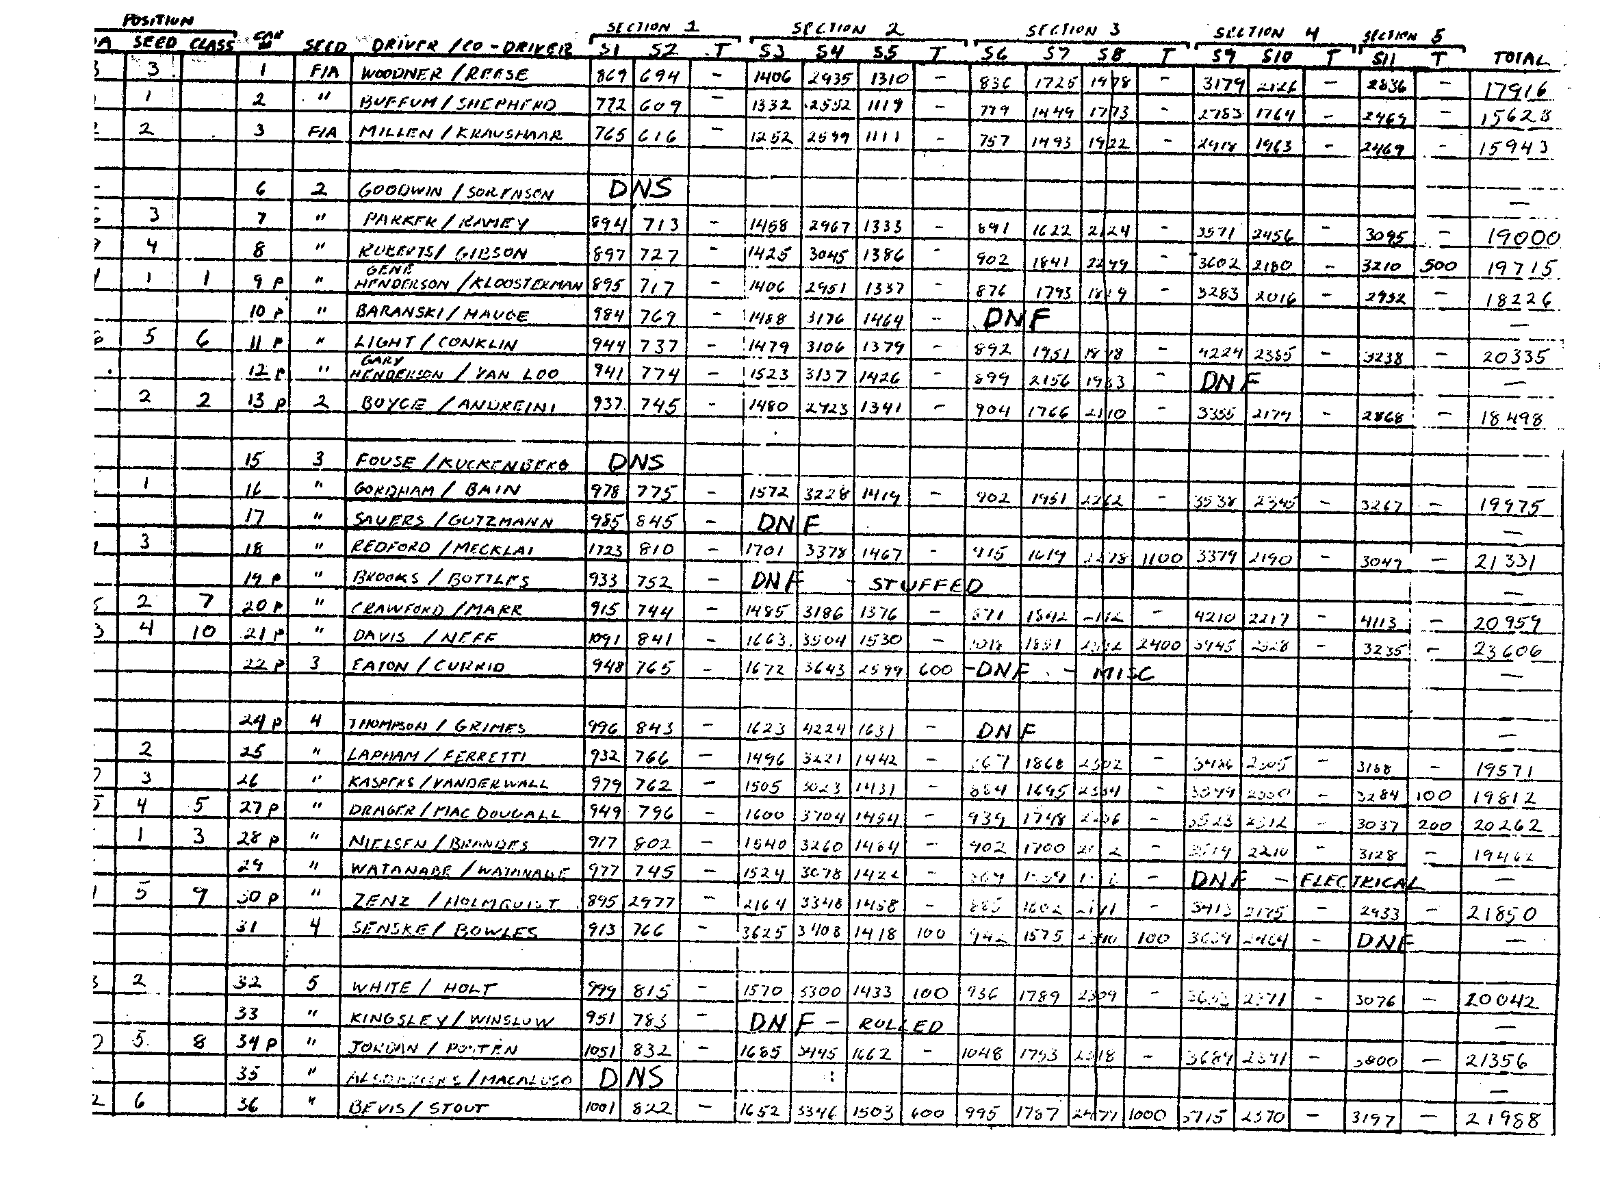 POSITION SECTION 1 SECTION 2 SECTION 3 SECTION 4 SECTION 5
A SEED CLASS CAR # SEED DRIVER / CO-DRIVER S1 S2 T S3 S4 S5 T S6 S7 S8 T S9 S10 T S11 T TOTAL
3 3 1 F/A WOODNER / REESE 869 694 - 1406 2935 1310 - 836 1725 1978 - 3179 2126 - 2836 - 17916
1 2 " BUFFUM / SHEPHERD 772 609 - 1332 2552 1119 - 779 1449 1773 - 2783 1764 - 2469 - 15628
2 2 3 F/A MILLEN / KRAUSHAAR 765 616 - 1252 2599 1111 - 757 1493 1922 - 2918 1963 - 2469 - 15943
- 6 2 GOODWIN / SORENSON DNS -
6 3 7 " PARKER / RAMEY 894 713 - 1458 2967 1333 - 891 1622 2124 - 3571 2456 - 3095 - 19000
9 4 8 " ROBERTS / GIBSON 897 727 - 1425 3045 1386 - 902 1841 2299 - 3602 2180 - 3210 500 19715
1 1 9 P " GENE HENDERSON / KLOOSTERMAN 895 717 - 1406 2951 1337 - 876 1793 - 3283 2016 - 2952 - 18226
10 P " BARANSKI / HAUGE 984 769 - 1488 3176 1464 - DNF -
5 6 11 P " LIGHT / CONKLIN 944 737 - 1479 3106 1379 - 892 1951 - 4224 2385 - 3238 - 20335
12 P " GARY HENDERSON / VAN LOO 941 774 - 1523 3137 1426 - 899 2156 1983 - DNF -
2 2 13 P 2 BOYCE / ANDREINI 937 745 - 1480 2923 1341 - 904 1766 2110 - 3355 2179 - 2868 - 18498
15 3 FOUSE / KUCKENBERG DNS
1 16 " GORDHAM / BAIN 978 775 - 1572 3228 1419 - 902 1951 2262 - 3538 2345 - 3267 - 19975
17 " SAUERS / GUTZMANN 985 845 - DNF -
3 18 " REDFORD / MECKLAI 1723 810 - 1701 3378 1467 - 915 1619 1100 3379 2190 - 3049 - 21331
19 P " BROOKS / BOTTLES 933 752 - DNF - STUFFED -
5 2 7 20 P " CRAWFORD / MARR 915 744 - 1485 3186 1376 - 871 1842 - 4210 2217 - 4113 - 20959
3 4 10 21 P " DAVIS / NEFF 1091 841 - 1663 3504 1530 - 2400 3445 2328 - 3235 - 23606
22 P 3 EATON / CURRID 948 765 - 1672 3643 2599 600 - DNF - MISC -
24 P 4 THOMPSON / GRIMES 996 843 - 1623 4224 1631 - DNF -
2 25 " LAPHAM / FERRETTI 932 766 - 1496 3221 1442 - 867 1868 2302 - 3486 - 3188 - 19571
3 26 " KASPERS / VANDERWALL 979 762 - 1505 3023 1431 - 884 1695 - 3284 100 19812
5 4 5 27 P " DRAGER / MACDOUGALL 949 796 - 1600 3704 1454 - 939 1748 - 3037 200 20262
1 3 28 P " NIELSEN / BRANDES 917 802 - 1540 3260 1464 - 902 1700 - 2210 - 3128 - 19462
29 " WATANABE / WATANABE 977 745 - 1524 3078 1422 - - DNF - ELECTRICAL -
1 5 9 30 P " ZENZ / HOLMQUIST 895 2977 - 2164 3348 1458 - 885 1602 - 3413 2175 - 2933 - 21850
31 4 SENSKE / BOWLES 913 766 - 3625 3408 1418 100 942 1575 100 3659 2464 - DNF -
3 2 32 5 WHITE / HOLT 999 815 - 1570 3300 1433 100 936 1789 2309 - 2371 - 3076 - 20042
33 " KINGSLEY / WINSLOW 951 783 - DNF - ROLLED -
5 8 34 P " JORDAN / POSTEN 1051 832 - 1685 3445 1662 - 1048 1793 2318 - 3689 2391 - 3800 - 21356
35 " DNS -
2 6 36 " BEVIS / STOUT 1001 822 - 1652 3346 1503 600 995 1787 2477 1000 3715 2370 - 3197 - 21988